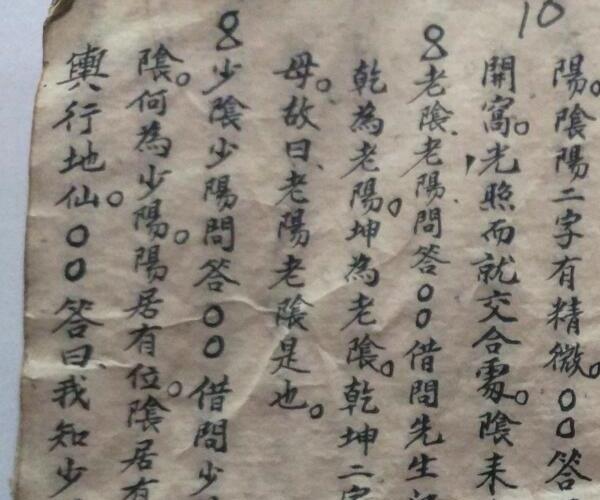 10
陽。陰陽二字有精微。○○答
開窩。光照而就交合處。陰來
8老陰、老陽問答○○借問先生
乾為老陽。坤為老陰。乾坤二字
母。故曰、老陽老陰是也。
8少陰少陽問答○○借問少
陰。何為少陽。陽居有位。陰居有
輿行地仙。○○答曰、我知少